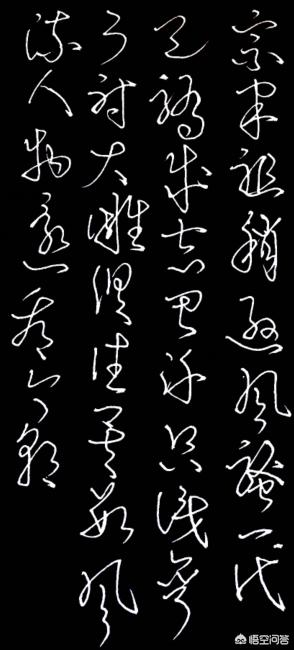 宗宋祖稍逊风骚一代
天骄成吉思汗只识弯
弓射大雕俱往矣数风
流人物还看今朝
悟空问答